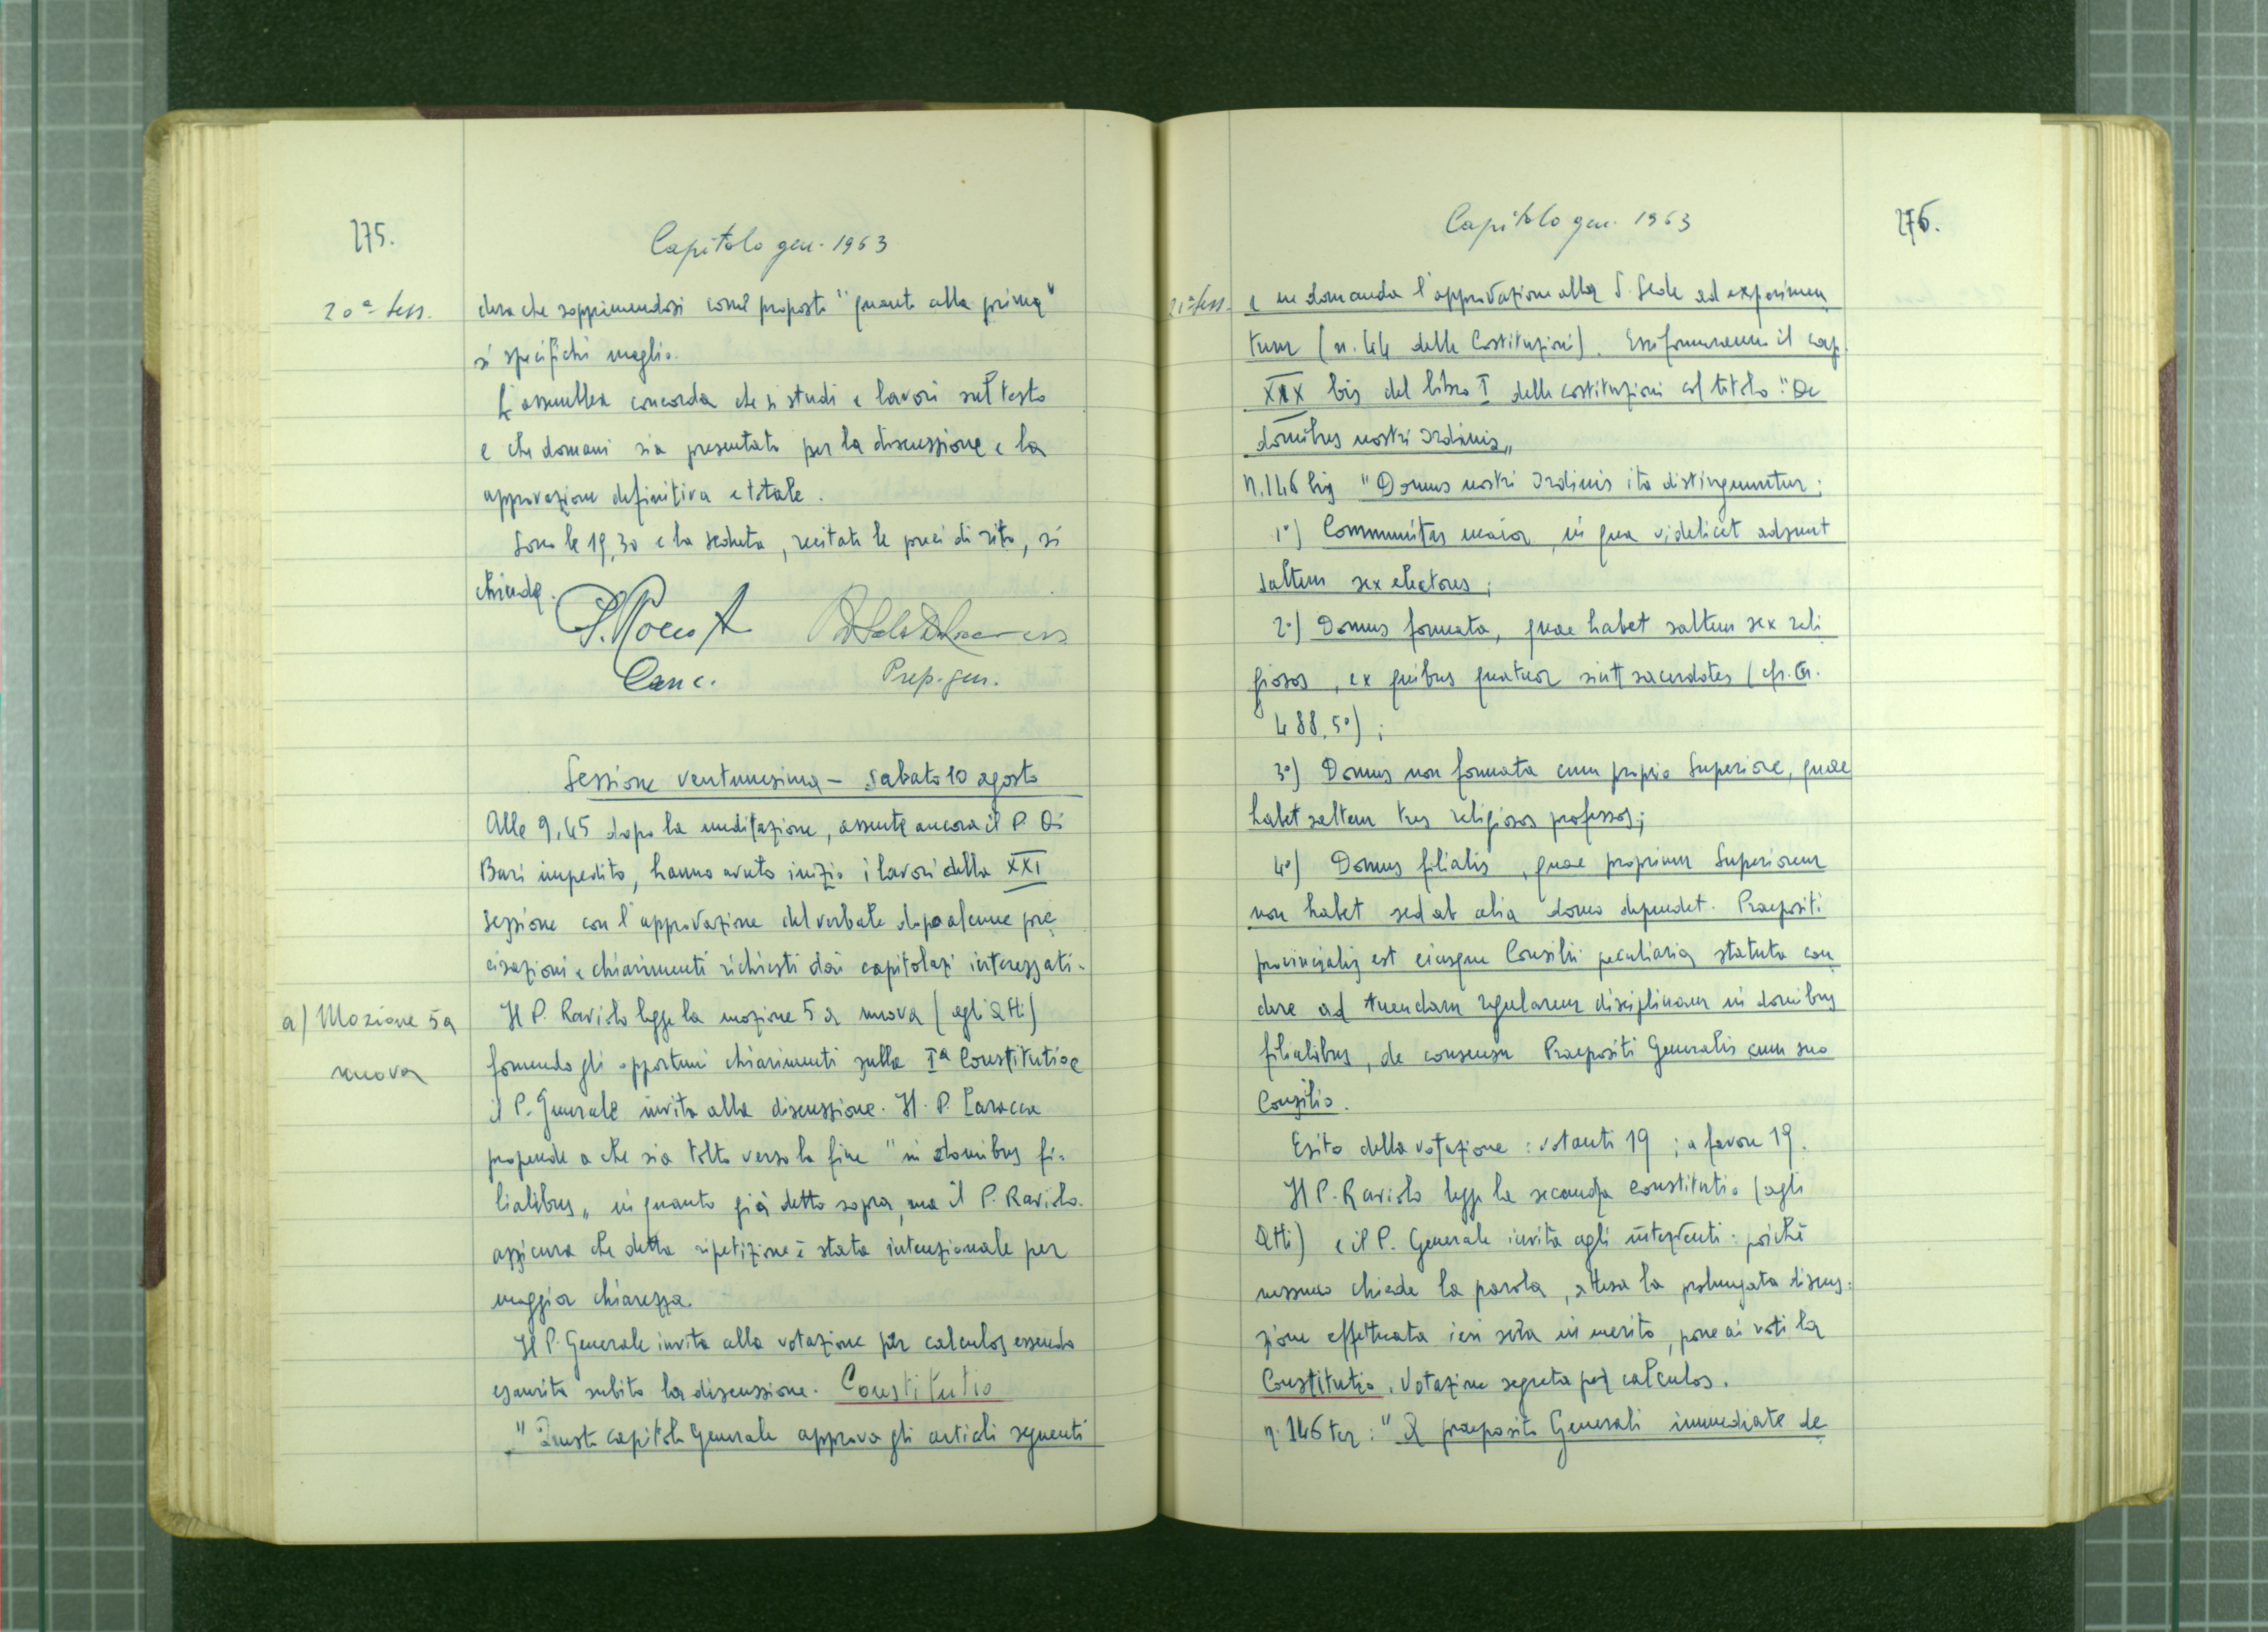 275.
Capitolo gen. 1963
20ª Sess.
dera che sopprimendosi com'è proposto "quanto alla prima"
si specifichi meglio.
L'assemblea concorda che si studi e lavori sul testo
e che domani sia presentato per la discussione e la
approvazione definitiva e totale.
Sono le 19,30 e la seduta, recitate le preci di rito, si
chiude.
Canc.
Prep. gen.
Sessione ventunesima - sabato 10 agosto
Alle 9,45 dopo la meditazione, assente ancora il P. Di
Bari impedito, hanno avuto inizio i lavori della XXI
sessione con l'approvazione del verbale dopo alcune pre
cisazioni e chiarimenti richiesti dai capitolari interessati.
a) Mozione 5a
nuova
Il P. Raviolo legge la mozione 5a nuova (agli Atti)
fornendo gli opportuni chiarimenti sulla Iª Constitutio e
il P. Generale invita alla discussione. Il P.
propende a che sia tolto verso la fine "in domibus fi=
lialibus„ in quanto già detto sopra, ma il P. Raviolo
assicura che detta ripetizione è stata intenzionale per
maggior chiarezza.
Il P. Generale invita alla votazione per calculos essendo
esaurita subito la discussione. Constitutio
"Questo capitolo Generale approva gli articoli seguenti
Capitolo gen. 1963
276.
21ª Sess.
e ne domanda l'approvazione alla S. Sede ad experimen
tum (n. 44 delle Costituzioni). Essi formeranno il cap.
XIX bis del libro I delle costituzioni col titolo: "De
domibus nostri Ordinis„
N. 146 bis "Domus nostri Ordinis ita distinguuntur:
1°) Communitas maior, in qua videlicet adsunt
saltem sex electores;
2°) Domus formata, quae habet saltem sex reli
giosos, ex quibus quatuor sint sacerdotes (cfr. Cn.
488, 5°);
3°) Domus non formata cum proprio Superiore, quae
habet saltem tres religiosos professos;
4°) Domus filialis, quae proprium Superiorem
non habet sed ab alia domo dependet. Praepositi
provincialis est eiusque Consilii peculiaria statuta con
dere ad tuendam regularem disciplinam in domibus
filialibus, de consensu Praepositi Generalis cum suo
Consilio.
Esito della votazione: votanti 19; a favore 19.
Il P. Raviolo legge la seconda Constitutio (agli
Atti) e il P. Generale invita agli interventi: poiché
nessuno chiede la parola, attesa la prolungata discus=
sione effettuata ieri sera in merito, pone ai voti la
Constitutio. Votazione segreta per calculos.
n. 146 ter: "A praeposito Generali immediate de